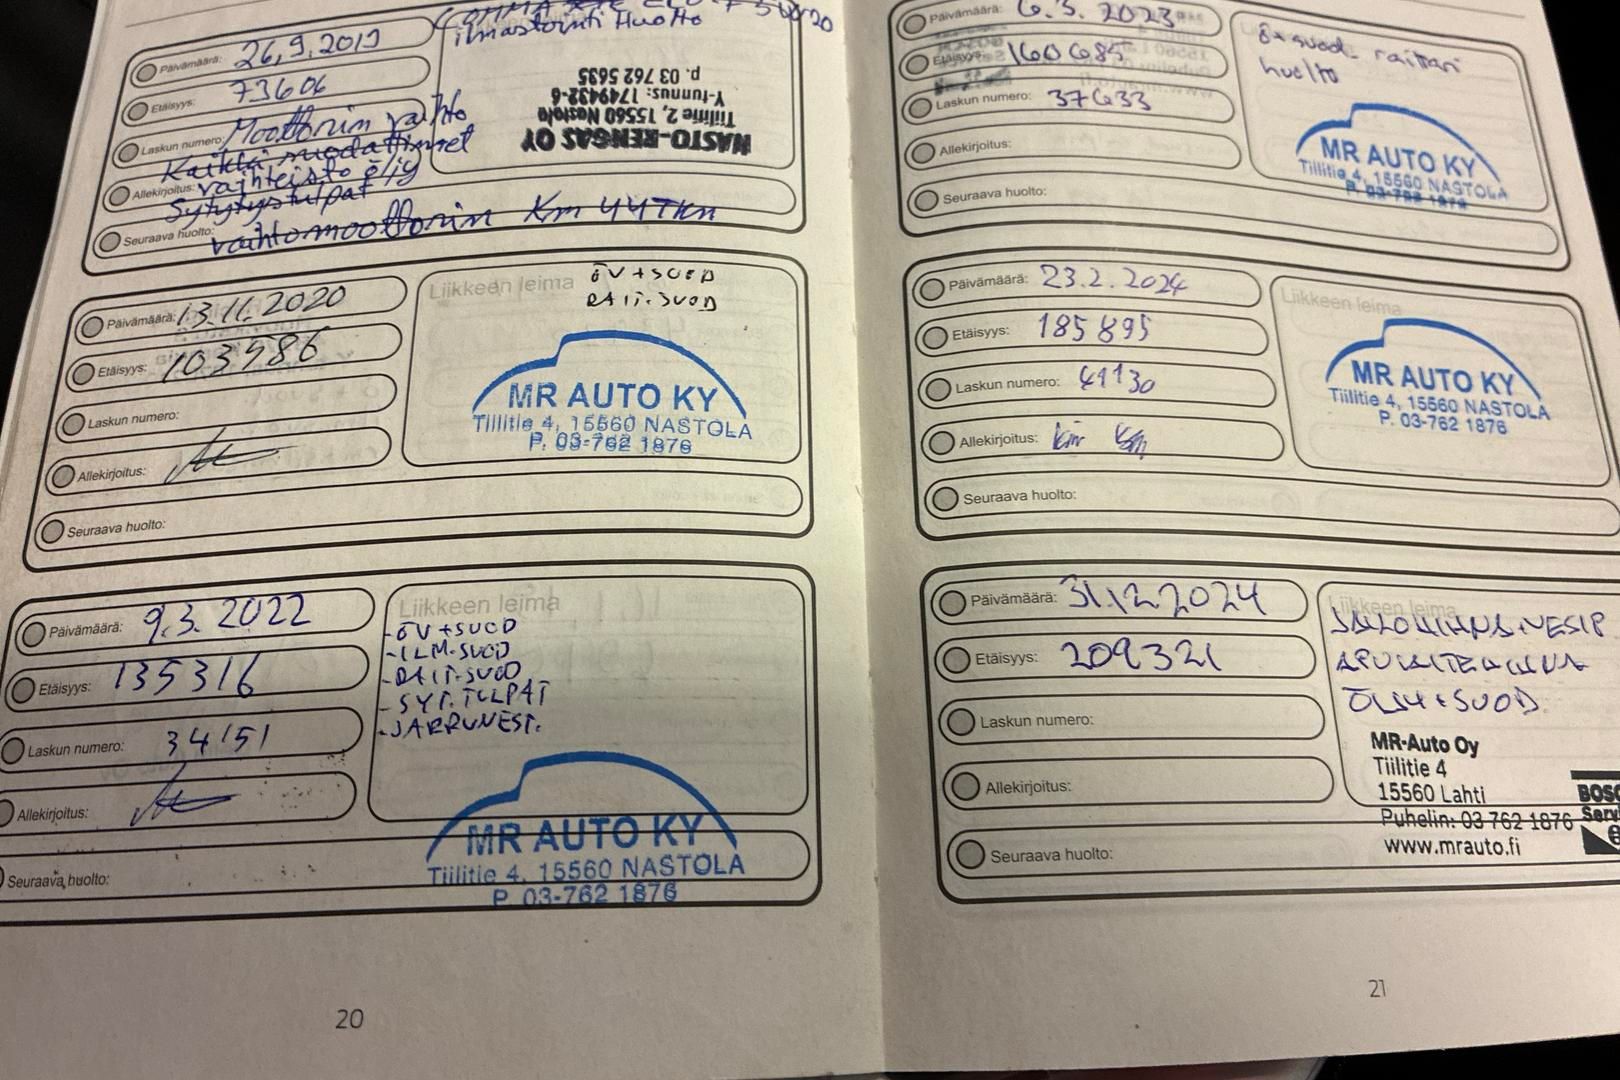 ilmastointi Huolto
Päivämäärä: 26.9.2019
Etäisyys: 73606
Laskun numero: Moottorin vaihto
Kaikki suodattimet
Allekirjoitus: vaihteisto öljy
Sytytystulpat
Seuraava huolto: vaihtomoottorin Km 44TKM
NASTO-RENGAS OY
Tiilitie 2, 15560 Nastola
Y-tunnus: 1749432-6
p. 03 762 5635
Päivämäärä: 13.11.2020
Etäisyys: 103986
Laskun numero:
Allekirjoitus:
Seuraava huolto:
Liikkeen leima
ÖV+SUOD
RAIT.SUOD
MR AUTO KY
Tiilitie 4, 15560 NASTOLA
P. 03-762 1876
Päivämäärä: 9.3.2022
Etäisyys: 135316
Laskun numero: 34151
Allekirjoitus:
Seuraava huolto:
Liikkeen leima
-ÖV+SUOD
-ILM.SUOD
-RAIT.SUOD
-SYT.TULPAT
-JARRUNEST.
MR AUTO KY
Tiilitie 4, 15560 NASTOLA
P. 03-762 1876
20
Päivämäärä: 6.3.2023
Etäisyys: 160685
Laskun numero: 37633
Allekirjoitus:
Seuraava huolto:
suod raitari
huolto
MR AUTO KY
Tiilitie 4, 15560 NASTOLA
P. 03-762 1876
Päivämäärä: 23.2.2024
Etäisyys: 185895
Laskun numero: 41130
Allekirjoitus:
Seuraava huolto:
Liikkeen leima
MR AUTO KY
Tiilitie 4, 15560 NASTOLA
P. 03-762 1876
Päivämäärä: 31.12.2024
Etäisyys: 209321
Laskun numero:
Allekirjoitus:
Seuraava huolto:
Liikkeen leima
ÖLJY+SUOD.
MR-Auto Oy
Tiilitie 4
15560 Lahti
Puhelin: 03 762 1876
www.mrauto.fi
21